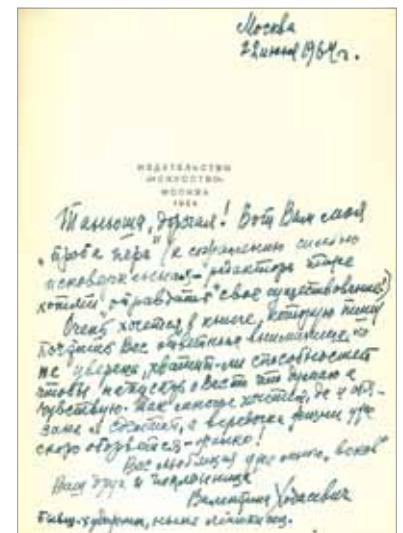 Москва
22 июня 1964 г.
ИЗДАТЕЛЬСТВО
«ИСКУССТВО»
МОСКВА
1964
Танюша, дорогая! Вот Вам моя
"проба пера" (к сожалению сильно
исковерканная – редакторы тоже
хотели "оправдать" своё существование!)
Очень хочется в книге, которую пишу
почтить Вас ответным вниманием, но
не уверена, хватит-ли способностей
чтобы на пускуо вести что думаю и
чувствую. Так многое хочется, да и
а верёвочка жизни уже
скоро оборвётся – жалко!
Вас любящая уже много, веков
Ваш друг и поклонница
Валентина Ходасевич
бывш. художник, ныне